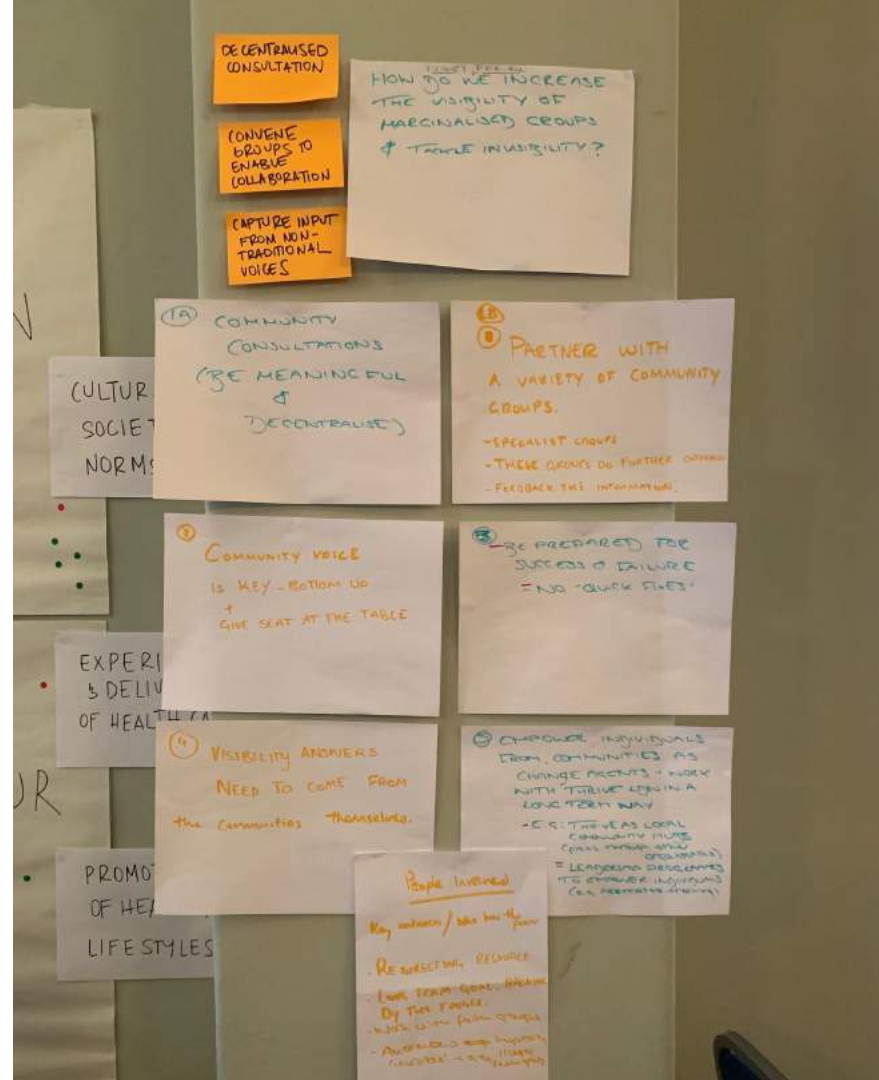 DECENTRALISED
CONSULTATION
CONVENE
GROUPS TO
ENABLE
COLLABORATION
CAPTURE INPUT
FROM NON-
TRADITIONAL
VOICES
HOW DO WE INCREASE
THE VISIBILITY OF
MARGINALISED GROUPS
& TACKLE INVISIBILITY?
1A COMMUNITY
CONSULTATIONS
(BE MEANINGFUL
&
DECENTRALISE)
1B
PARTNER WITH
A VARIETY OF COMMUNITY
GROUPS.
- SPECIALIST GROUPS
- THESE GROUPS DO FURTHER
- FEEDBACK THIS INFORMATION.
2
COMMUNITY VOICE
IS KEY - BOTTOM UP
+
GIVE SEAT AT THE TABLE
3
- BE PREPARED FOR
SUCCESS & FAILURE
= NO "QUICK FIXES"
4 VISIBILITY ANSWERS
NEED TO COME FROM
the communities themselves.
5 EMPOWER INDIVIDUALS
FROM COMMUNITIES AS
CHANGE AGENTS + WORK
WITH THRIVE LDN IN A
LONG TERM WAY
- E.G: THRIVE AS LOCAL
COMMUNITY HUBS
= LEADERSHIP PROGRAMMES
TO EMPOWER INDIVIDUALS
People Involved
Key / who has the power
- REDIRECTING RESOURCE
- LONG TERM GOAL, BACKING
BY THE FUNDER.
- Work with groups
CULTUR
SOCIET
NORMS
EXPERI
& DELIV
OF HEALTH CA
PROMO
OF HEA
LIFESTYLES
N
UR